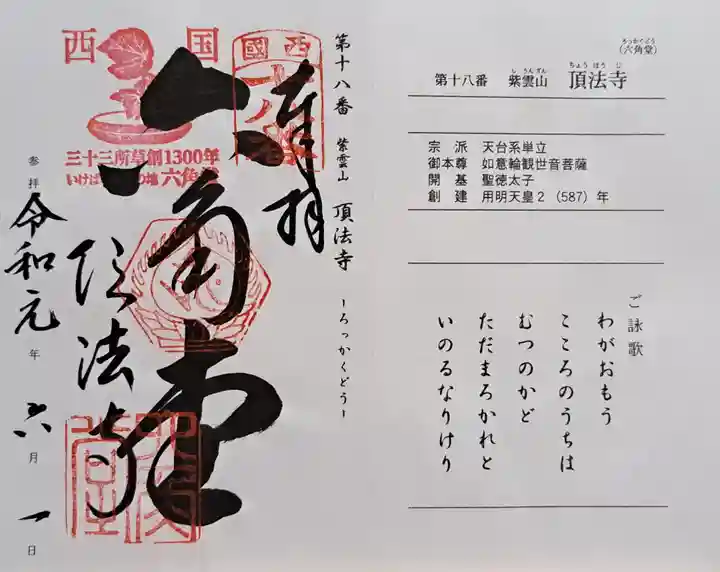 (六角堂)
ろっかくどう
第十八番 紫雲山 頂法寺
しうんざん
ちょうほうじ
宗派 天台系単立
御本尊 如意輪観世音菩薩
開基 聖徳太子
創建 用明天皇2(587)年
ご詠歌
わがおもう
こころのうちは
むつのかど
ただまろかれと
いのるなりけり
第十八番 紫雲山 頂法寺 ーろっかくどうー
奉拝
六角堂
頂法寺
西国
三十三所草創1300年
の地 六角
参拝 令和元年 六月 一日